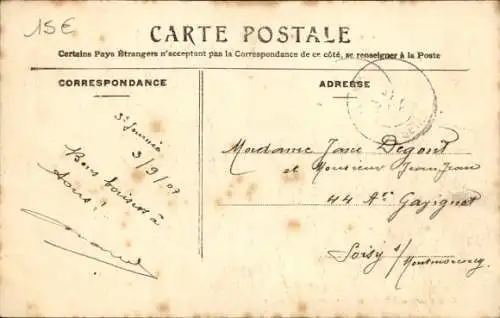 15€
CARTE POSTALE
Certains Pays Étrangers n'acceptent pas la Correspondance de ce côté, se renseigner à la Poste
CORRESPONDANCE
3/9/07
Bons baisers à
tous!
ADRESSE
Madame Jane Degont
et Monsieur Jean Jean
44 Av. Gavignot
Soisy s/
Montmorency